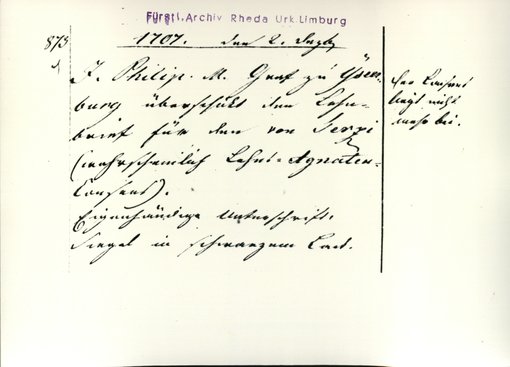 Fürstl. Archiv Rheda Urk. Limburg
873
1707. den 2. Dezbr
J. Philip. M. Graf zu Ysen-
burg überschikt den Lehn-
brief für den von
(wahrscheinlich Lehns-Agnaten-
Consens).
Eigenhändige Unterschrift.
Siegel in schwarzem Lack.
Der Consens
liegt nicht
mehr bei.